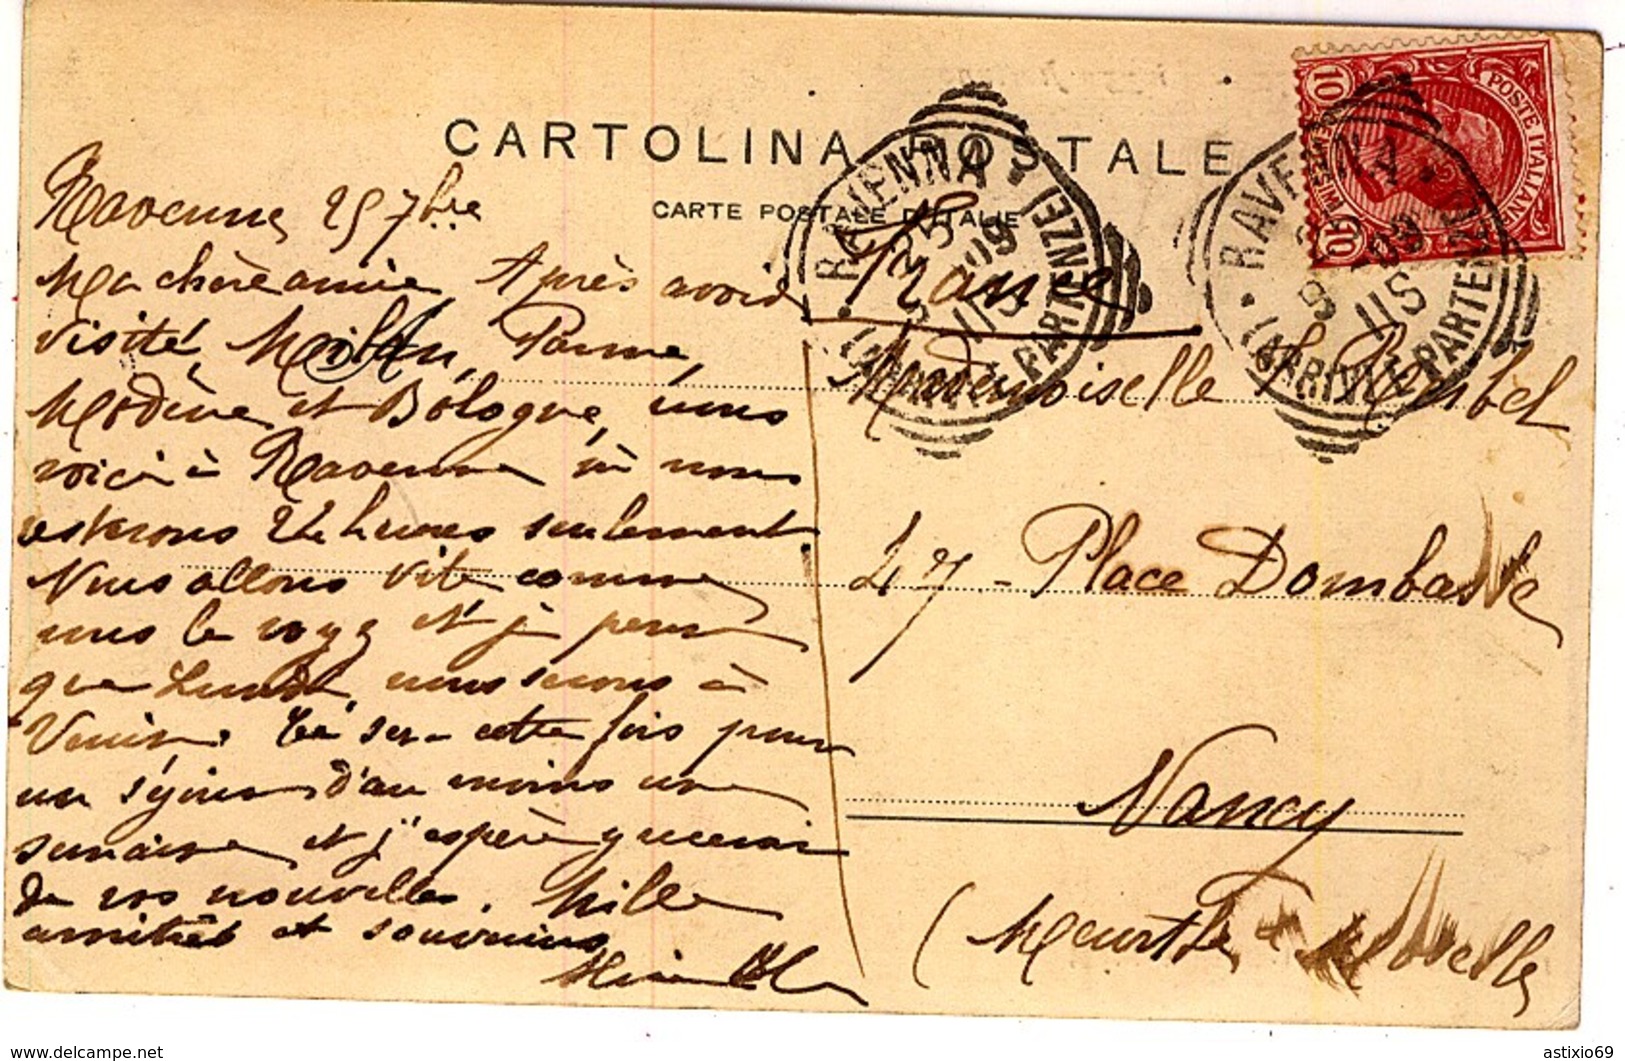 CARTOLINA POSTALE
CARTE POSTALE D'ITALIE
Ravenne 25 7bre
Ma chère amie, Après avoir
visité, Milan, Parme,
Modène et Bologne, nous
voici à Ravenne où nous
resterons 24 heures seulement.
Nous allons vite comme
vous le voyez et je pense
que Lundi, nous serons à
Venise. Ce sera cette fois pour
un séjour d'au moins une
semaine et j'espère y recevoir
de vos nouvelles. Mille
amitiés et souvenirs
France
Mademoiselle
27 - Place Dombasle
Nancy
(Meurthe & Moselle
RAVENNA
(ARRIVI E PARTENZE)
25 9 09
11S
RAVENNA
(ARRIVI E PARTENZE)
9 09
11S
POSTE ITALIANE
10
10
astixio69